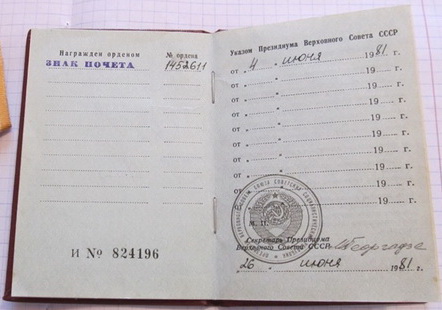 Награжден орденом № ордена
ЗНАК ПОЧЕТА 1452611
И № 824196
Указом Президиума Верховного Совета СССР
от „ 4 „ июня 1981 г.
от „ „ 19 г.
от „ „ 19 г.
от „ „ 19 г.
от „ „ 19 г.
от „ „ 19 г.
от „ „ 19 г.
от „ „ 19 г.
от „ „ 19 г.
М. П.
Секретарь Президиума
Верховного Совета СССР Георгадзе
„ 26 „ июня 1981 г.